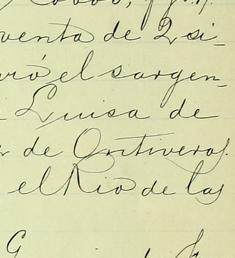 venta de 2 si-
ró el sargen-
Luisa de
de Ontiveros.
el Rio de las